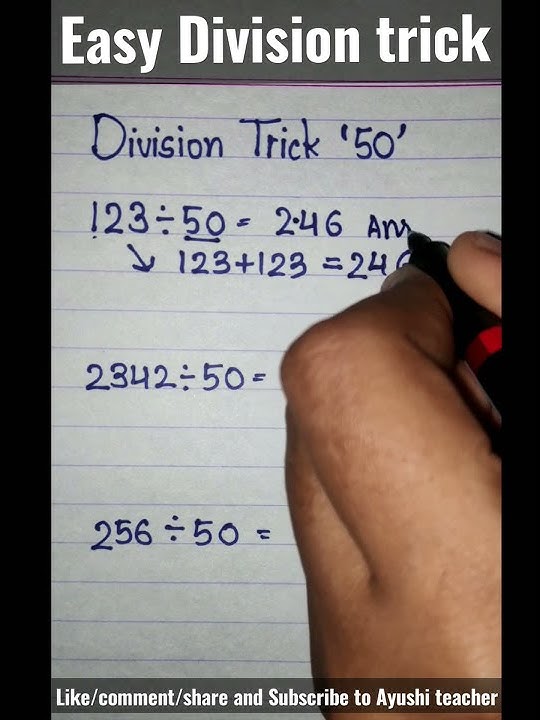 Easy Division trick
Division Trick '50'
123÷50 = 2.46 Ans
↘ 123+123 = 246
2342÷50=
256÷50 =
Like/comment/share and Subscribe to Ayushi teacher